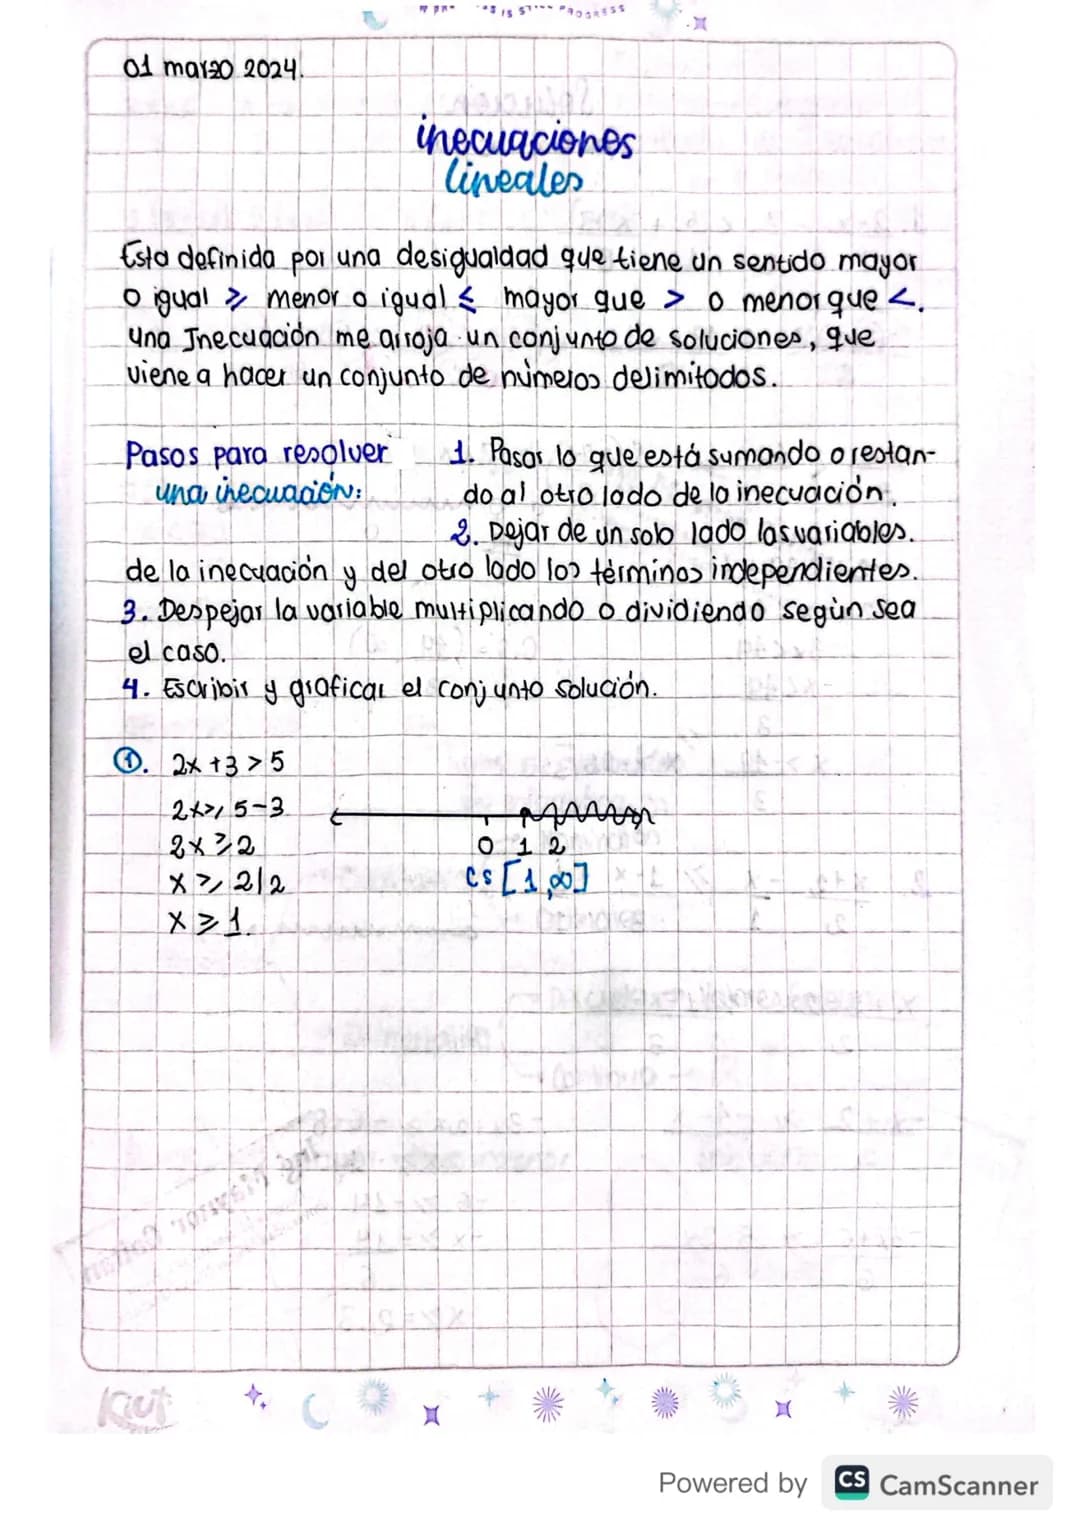 01 marzo 2024.
inecuaciones
lineales
Esta definida por una desigualdad que tiene un sentido mayor
o igual ≥ menor o igual ≤ mayor que > o menor que <.
una Inecuación me arroja un conjunto de soluciones, que
viene a hacer un conjunto de números delimitados.
Pasos para resolver
una inecuación:
1. Pasar lo que está sumando o restan-
do al otro lado de la inecuación.
2. Dejar de un solo lado las variables.
de la inecuación y del otro lado los términos independientes.
3. Despejar la variable multiplicando o dividiendo según sea
el caso.
4. Escribir y graficar el conjunto solución.
①. 2x + 3 > 5
2x ≥ 5-3
2x ≥ 2
x ≥ 2/2
x ≥ 1.
0 1 2
CS [1,∞]
Kiut
Powered by CS CamScanner